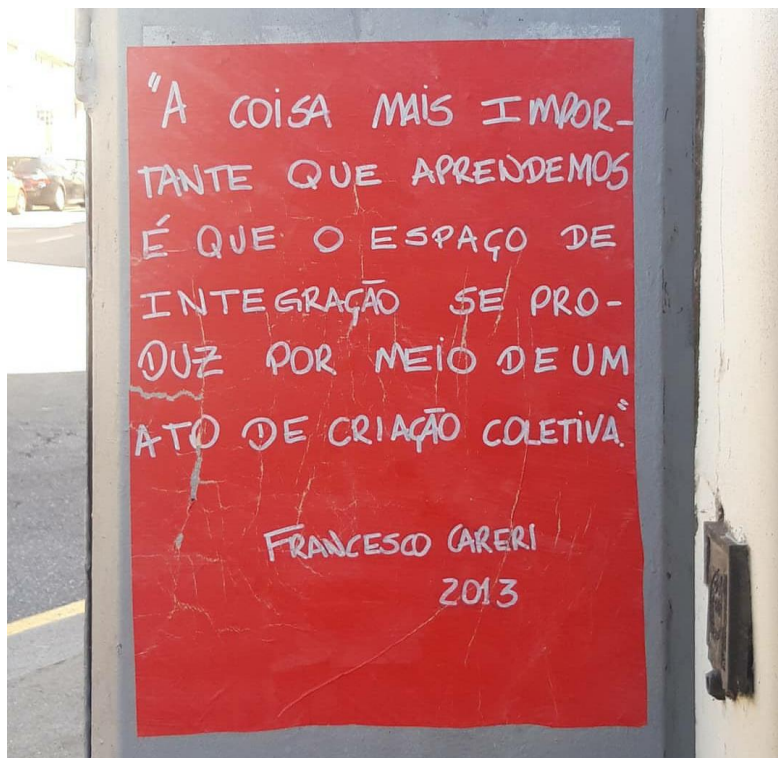 "A COISA MAIS IMPOR-
TANTE QUE APRENDEMOS
É QUE O ESPAÇO DE
INTEGRAÇÃO SE PRO-
DUZ POR MEIO DE UM
ATO DE CRIAÇÃO COLETIVA."
FRANCESCO CARERI
2013